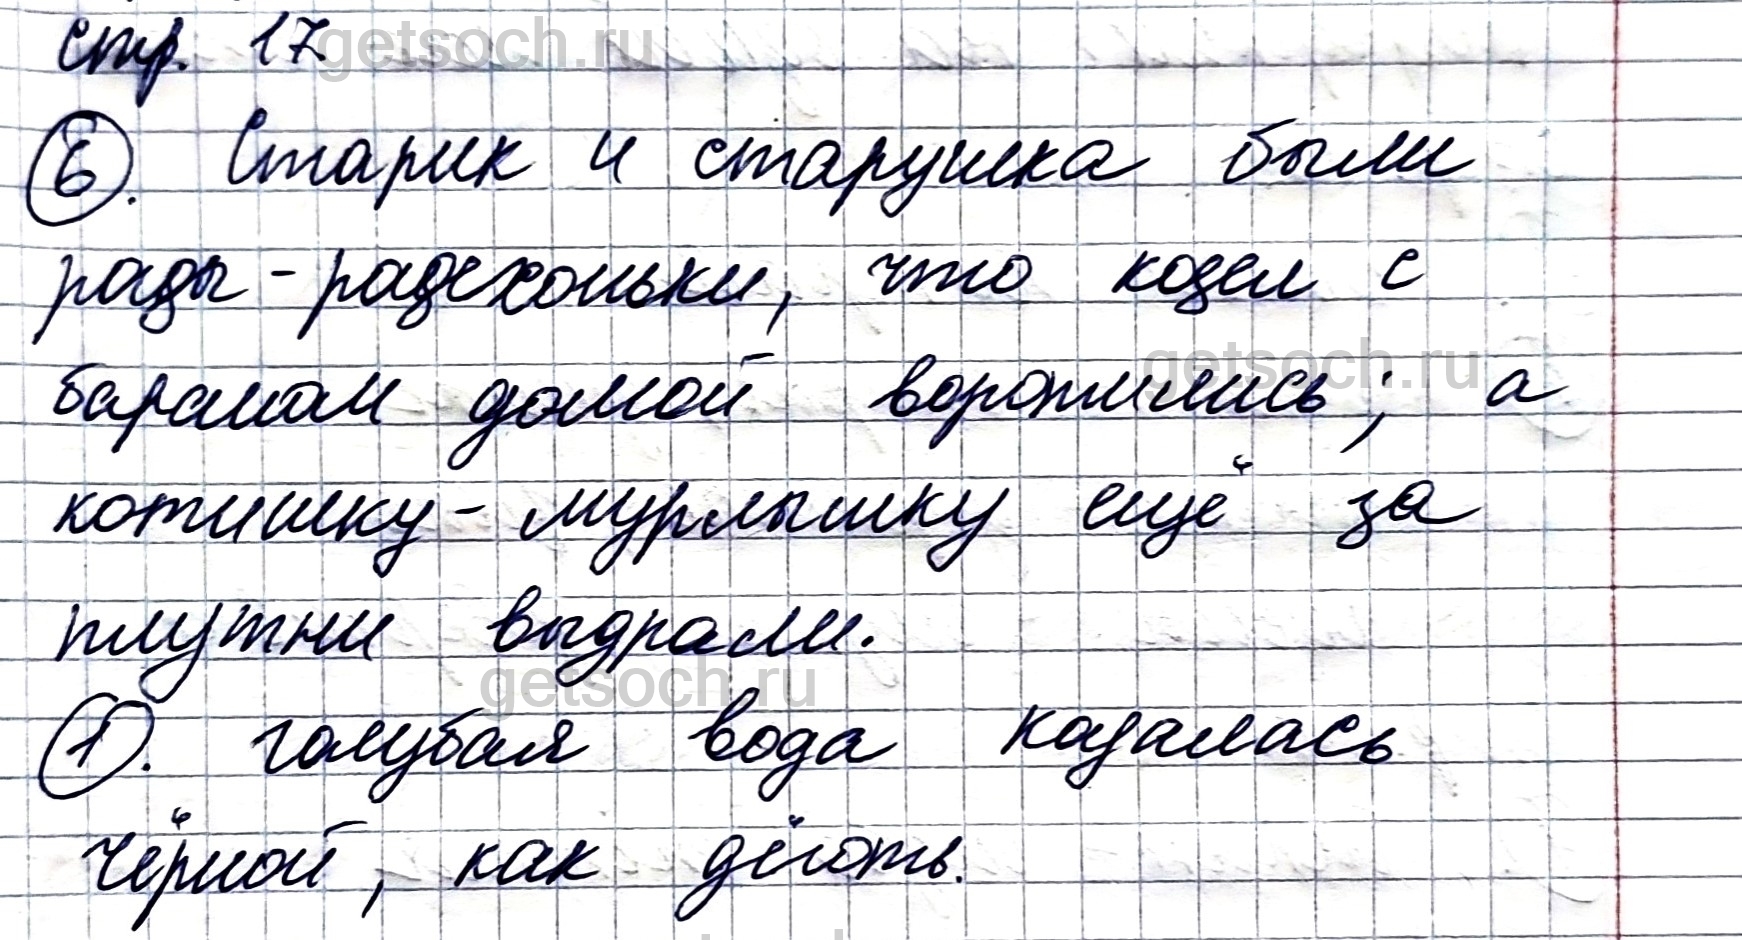 стр. 17.
getsoch.ru
6. Старик и старушка были
рады-радехоньки, что козел с
getsoch.ru
бараном домой воротились; а
котишку-мурлышку ещё за
плутни выдрали.
getsoch.ru
1. голубая вода казалась
чёрной, как дёготь.